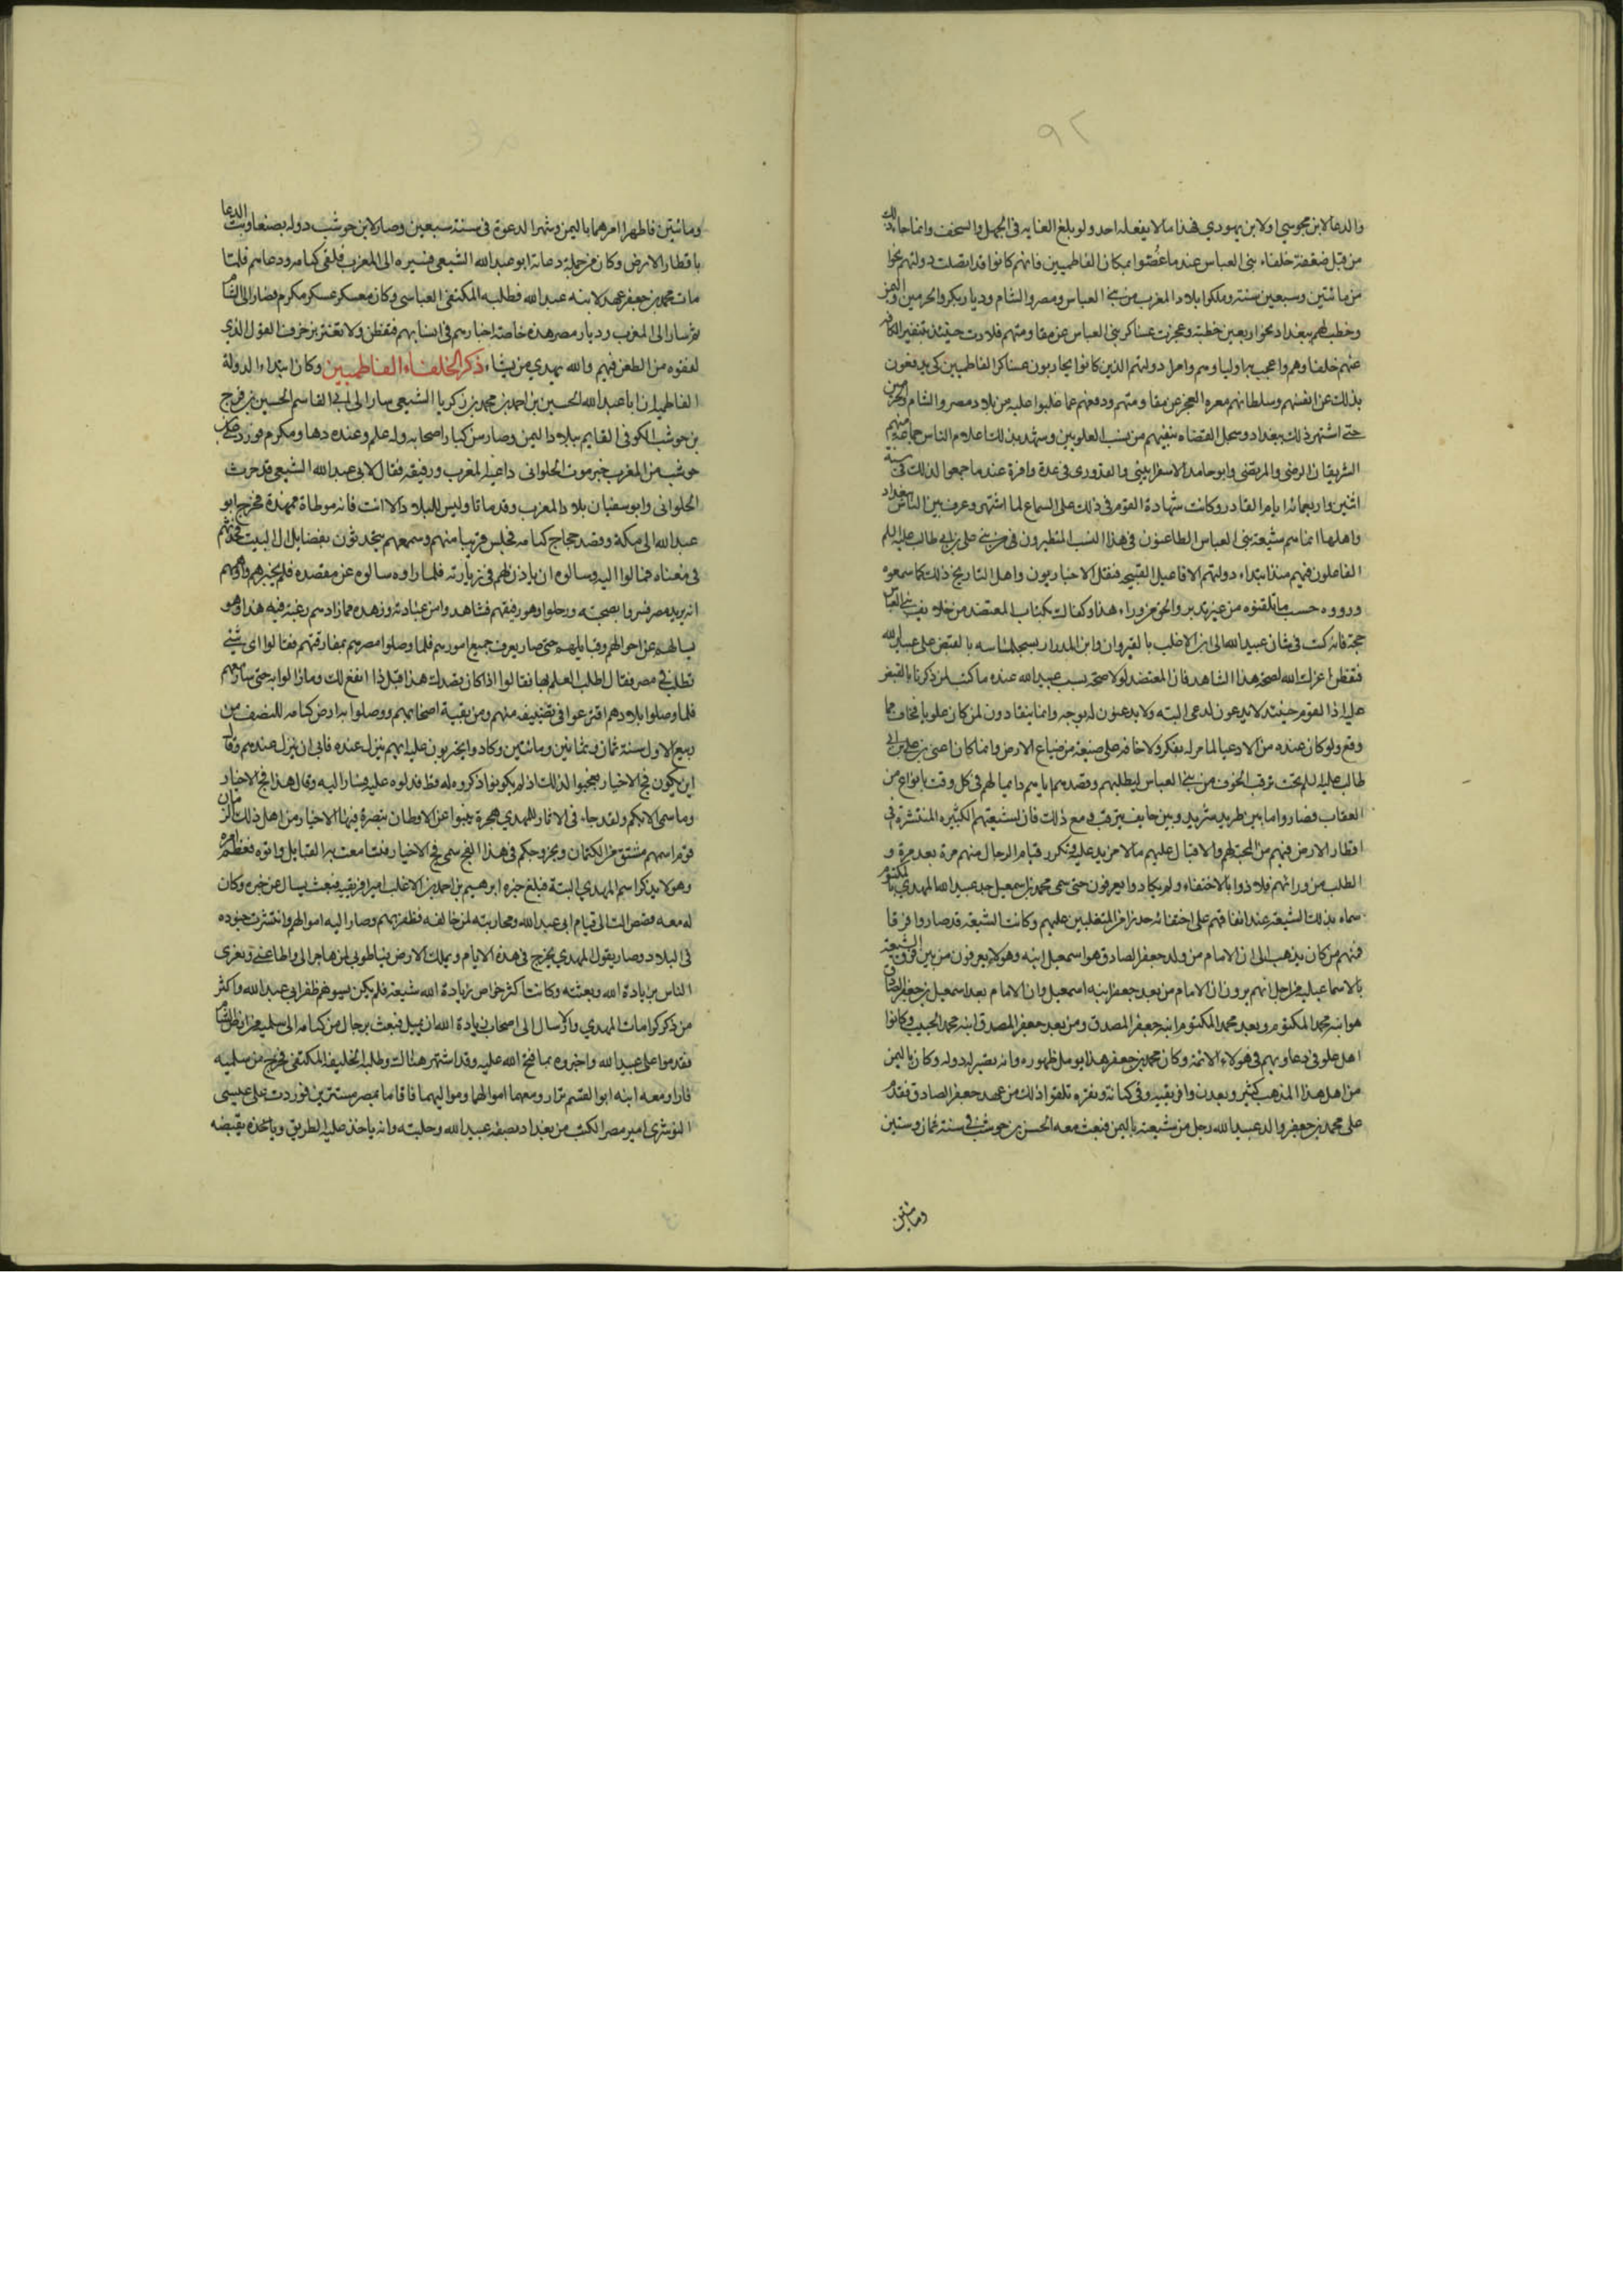 ٩٢
والدعا لابن مجوسي اولابن يهودي فهذا مالا يفعله احد ولو بلغ الغايه في الجهل والسخف وانما جا ذلك
من قبل ضعفة خلفاء بني العباس عندما غصوا بمكان الفاطميين فانهم كانوا قد اتصلت دولتهم نحوا
من مائتين وسبعين سنة وملكوا بلاد المغرب من بني العباس ومصر والشام وديار بكر والحرمين واليمن
وخطب لهم ببغداد نحو اربعين خطبة وعجزت عساكر بني العباس عن مقاومتهم فلاذت حينئذ بتنفير الكافه
عنهم خلفاوهم واعجب به اولياوهم وامرا دولتهم الذين كانوا يحاربون عساكر الفاطميين كي يدفعون
بذلك عن انفسهم وسلطانهم معره العجز عن مقاومتهم ودفعهم عما غلبوا عليه من بلاد مصر والشام والحرمين
حتى اشتهر ذلك ببغداد وسجل القضاه بنفيهم من نسب العلويين وشهد بذلك اعلام الناس جماعة منهم
الشريفان الرضي والمرتضي وابو حامد الاسفرايني والقدوري في عدة وافرة عندما جمعوا لذلك في سنة
اثنين واربعمائة بامر القادر وكانت شهادة القوم في ذلك على السماع لما اشتهر وعرف بين الناس ببغداد
واهلها انما هم شيعة بني العباس الطاعنون في هذا النسب المتطيرون في من بني علي بن ابي طالب عليه السلم
الفاعلون فيهم منذ ابتداء دولتهم الافاعيل القبيحه فنقل الاخباريون واهل التاريخ ذلك كما سمعوه
ورووه حسب ما تلقنوه من غير تدبر والحق من وراء هذا وكفاك بكتاب المعتضد من خلايف بني العباس
حجة فانه كتب في شان عبيد الله الى ابن الاغلب بالقيروان وابن المدرار بسجلماسه بالقبض على عبيد الله
فتفطن اعزك الله لصحة هذا الشاهد فان المعتضد لولا صحة نسب عبيد الله عنده ما كتب لمن ذكرنا بالقبض
عليه اذ القوم حينئذ لا يدعون لدعي البته ولا يدعنون له بوجه وانما ينقادون لمن كان علويا فخاف مما
وقع ولو كان عنده من الادعيا لما مر له بفكر ولا خافه على ضيعة من ضياع الارض وانما كان اعني بن علي بن ابي
طالب عليه السلم تحت ترقب الخوف من بني العباس لتطلبهم وقصدهم اياهم دايما لهم في كل وقت بانواع من
العقاب فصاروا ما بين طريد شريد وبين خايف يترقب مع ذلك فان لشيعتهم الكثيره المنتشرة في
اقطار الارض فيهم من المحبة لهم والاقبال عليهم مالا مزيد عليه وتكرر قيام الرجال منهم مرة بعد مرة و
الطلب من ورائهم فلاذوا بالاختفاء ولم يكادوا يعرفون حتى سمي محمد بن اسمعيل جد عبيد الله المهدي بالمكتوم
سماه بذلك الشيعة عند اتفاقهم على اختفائه حذرا من المتغلبين عليهم وكانت الشيعة قد صاروا فرقا
فمنهم من كان يذهب الى ان الامام من ولد جعفر الصادق هو اسمعيل ابنه وهولاء يعرفون من بين فرق الشيعة
بالاسماعيليه من اجل انهم يرون ان الامام من بعد جعفر ابنه اسمعيل وان الامام بعد اسمعيل بن جعفر الصادق
هو ابنه محمد المكتوم وبعد محمد المكتوم ابنه جعفر المصدق ومن بعد جعفر المصدق ابنه محمد الحبيب وكانوا
اهل غلو في دعاويهم في هولاء الائمه وكان محمد بن جعفر هذا يومل ظهوره وانه يصير له دوله وكان باليمن
من اهل هذا المذهب كثير وبعدن وافريقيه وفي كتامة ونفزه تلقوا ذلك من عهد جعفر الصادق فقدم
على محمد بن جعفر والد عبيد الله رجل من شيعته باليمن فبعث معه الحسن بن حوشب في سنة ثمان وستين
ومائتين
ومائتين فاظهرا امرهما باليمن وشهرا الدعوة في سنة سبعين وصار لابن حوشب دولة بصنعا وبث الدعا
باقطار الارض وكان من جملة دعاته ابو عبد الله الشيعي فسيره الى المغرب فلقي كتامه ودعاهم فلما
مات محمد بن جعفر عهد لابنه عبيد الله فطلبه المكتفي العباسي وكان معسكر عسكر مكرم فصار الى الشام
ثم سار الى المغرب وديار مصر هذه خاصة اخبارهم في انسابهم فتفطن ولا تغتر بزخرف القول الذي
لفقوه من الطعن فيهم والله يهدي من يشاء ذكر الخلفاء الفاطميين وكان ابتداء الدولة
الفاطمية ان ابا عبد الله الحسين بن احمد بن محمد بن زكريا الشيعي سار الى ابي القاسم الحسين بن فرج
بن حوشب الكوفي القايم ببلاد اليمن وصار من كبار اصحابه وله علم وعنده دها ومكر فورد على ابن
حوشب من المغرب خبر موت الحلواني داعيه المغرب ورفيقه فقال لابي عبد الله الشيعي قد حرث
الحلواني وابو سفيان بلاد المغرب وقد ماتا وليس للبلاد الا انت فانه موطاة ممهدة فخرج ابو
عبد الله الى مكة وقصد حجاج كتامه فجلس قريبا منهم وسمعهم يتحدثون بفضايل ال البيت فحدثهم
في معناه فمالوا اليه وسالوه ان ياذن لهم في زيارته فلما راوه سالوه عن مقصده فلم يخبرهم واوهمهم
انه يريد مصر فسروا بصحبته ورحلوا وهو رفيقهم فشاهدوا من عبادته وزهده ما زادهم رغبة فيه هذا وهو
يسالهم عن احوالهم وقبايلهم حتى صار يعرف جميع امورهم فلما وصلوا مصر هم بمفارقتهم فقالوا اي شيئ
تطلب في مصر فقال اطلب العلم بها فقالوا اذا كان قصدك هذا فبلادنا انفع لك ومازالوا به حتى سار معهم
فلما وصلوا بلادهم اقترعوا في تضييفه منهم ومن بقية اصحابهم ووصلوا به ارض كتامه للنصف من
ربيع الاول سنة ثمان وثمانين ومائتين وكادوا يختربون عليه ايهم ينزل عنده فابى ان ينزل عندهم وقال
اين يكون فج الاخيار فعجبوا لذلك اذ لم يكونوا ذكروه له قط فدلوه عليه فسار اليه وقال هذا فج الاخيار
وما سمي الا بكم ولقد جاء في الاثار للمهدي هجرة ينبوا عن الاوطان ينصره فيها الاخيار من اهل ذلك الزمان
قوم اسمهم مشتق من الكتمان وبخروجكم في هذا الفج سمي فج الاخيار فتسامعت به القبايل واتوه فعظم امره
وهو لا يذكر اسم المهدي البتة فبلغ خبره ابرهيم بن احمد بن الاغلب امير افريقيه فبعث يسال عن خبره وكان
له معه قصص الت الى قيام ابي عبد الله ومحاربته لمن خالفه فظفر بهم وصار اليه اموالهم وانتشرت جنوده
في البلاد وصار يقول المهدي يخرج في هذه الايام ويملك الارض فيا طوبى لمن هاجر الي واطاعني ويغري
الناس بزيادة الله ويعيبه وكانت اكثر خواص زيادة الله شيعه فلم يكن يسوهم ظفر ابي عبد الله واكثر
من ذكر كرامات المهدي والارسال الى اصحاب زيادة الله ان يميل فبعث برجال من كتامه الى سلميه من ارض الشام
فقدموا على عبيد الله واخبروه بما فتح الله عليه وقد اشتهر هناك وطلبه الخليفه المكتفي فخرج من سلميه
فارا ومعه ابنه ابو القسم نزار ومعهما اموالهما ومواليهما فاقاما بمصر مستترين فوردت على عيسى
النوشري امير مصر الكتب من بغداد بصفة عبيد الله وحليته وانه ياخذ عليه الطريق وياخذه بقبضه